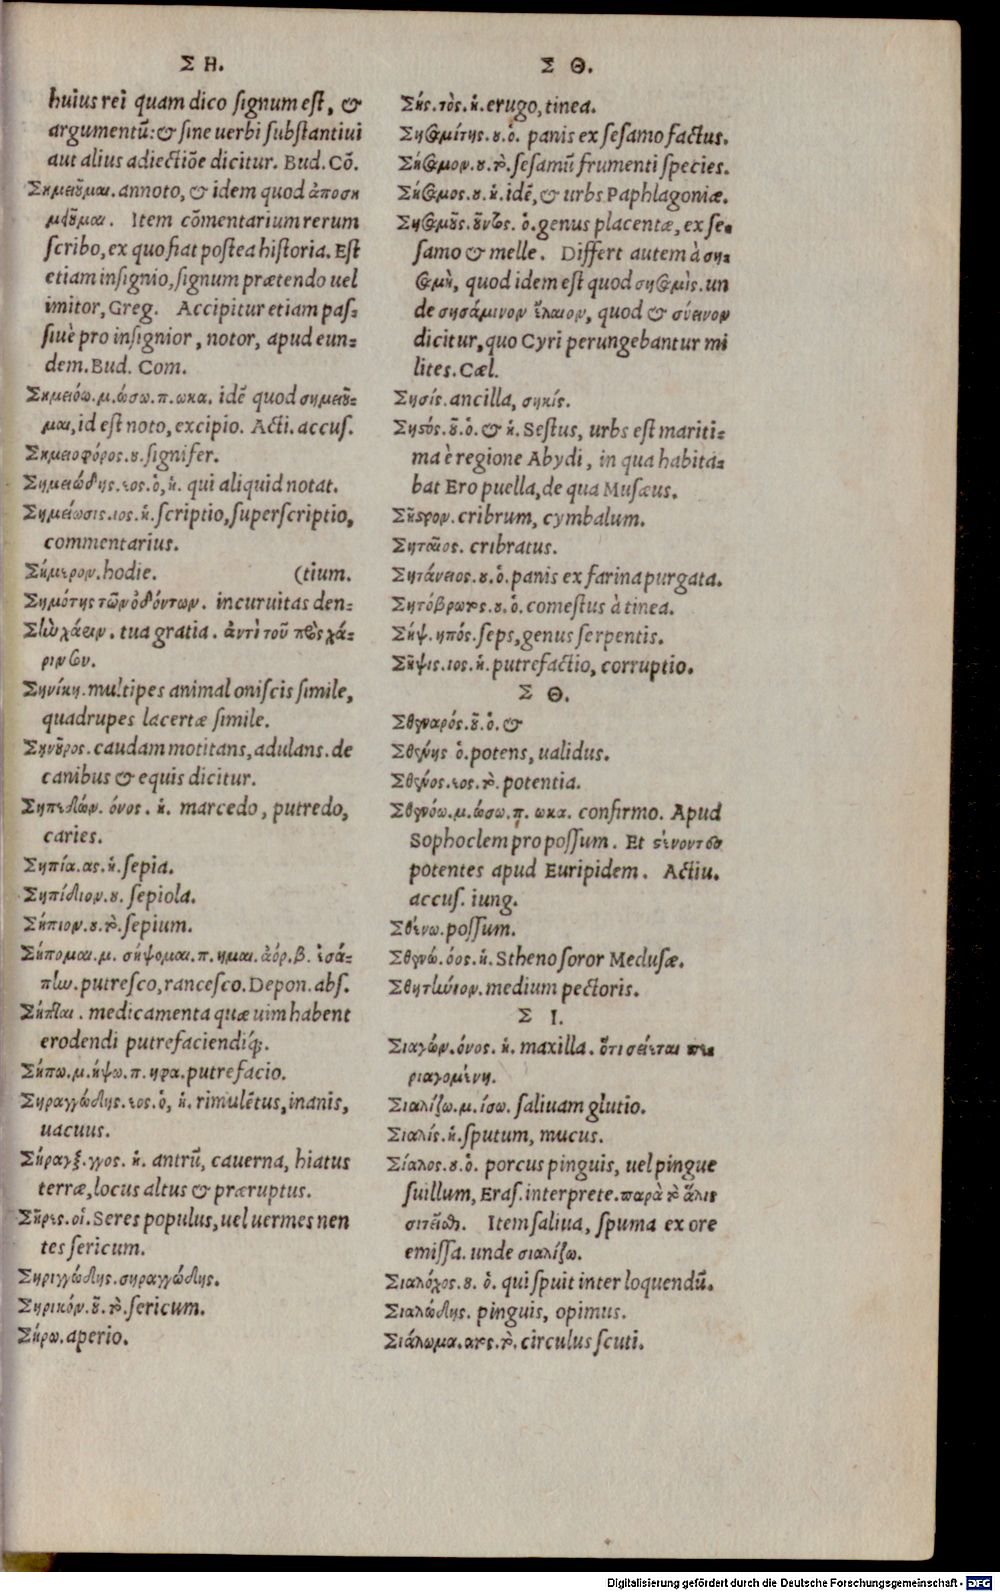 Σ Η.
huius rei quam dico signum est, &
argumentū: & sine uerbi substantiui
aut alius adiectiōe dicitur. Bud. Cō.
Σημειοῦμαι. annoto, & idem quod ἀποση
μειοῦμαι. Item cōmentarium rerum
scribo, ex quo fiat postea historia. Est
etiam insignio, signum prætendo uel
imitor, Greg. Accipitur etiam pas-
siuè pro insignior, notor, apud eun-
dem. Bud. Com.
Σημειόω. μ. ώσω. π. ωκα. idē quod σημειοῦ-
μαι, id est noto, excipio. Acti. accus.
Σημειοφόρος. ου. signifer.
Σημειώδης. εος. ὁ, ἡ. qui aliquid notat.
Σημείωσις. ιος. ἡ. scriptio, superscriptio,
commentarius.
Σήμερον. hodie. (tium.
Σημότης τῶν ὀδόντων. incuruitas den-
Σὴν χάριν. tua gratia. ἀντὶ τοῦ πρὸς χά-
ριν σου.
Σηνίκη. multipes animal oniscis simile,
quadrupes lacertæ simile.
Σηνῦρος. caudam motitans, adulans. de
canibus & equis dicitur.
Σηπεδών. όνος. ἡ. marcedo, putredo,
caries.
Σηπία. ας. ἡ. sepia.
Σηπίδιον. ου. sepiola.
Σήπιον. ου. τὸ. sepium.
Σήπομαι. μ. σήψομαι. π. ημαι. ἀόρ. β. ἐσά-
πην. putresco, rancesco. Depon. abs.
Σήπται. medicamenta quæ uim habent
erodendi putrefaciendiq́;.
Σήπω. μ. ήψω. π. ηφα. putrefacio.
Σηραγγώδης. εος. ὁ, ἡ. rimulētus, inanis,
uacuus.
Σήραγξ. γγος. ἡ. antrū, cauerna, hiatus
terræ, locus altus & præruptus.
Σῆρες. οἱ. Seres populus, uel uermes nen
tes sericum.
Σηριγγώδης. σηραγγώδης.
Σηρικόν. οῦ. τὸ. sericum.
Σήρω. aperio.
Σ Θ.
Σής. τὸς. ἡ. erugo, tinea.
Σησαμίτης. ου. ὁ. panis ex sesamo factus.
Σήσαμον. ου. τὸ. sesamū frumenti species.
Σήσαμος. ου. ἡ. idē, & urbs Paphlagoniæ.
Σησαμοῦς. οῦντος. ὁ. genus placentæ, ex se-
samo & melle. Differt autem à ση-
σαμὴ, quod idem est quod σησαμὶς. un
de σησάμινον ἔλαιον, quod & σύεινον
dicitur, quo Cyri perungebantur mi
lites. Cæl.
Σησίς. ancilla, σηκίς.
Σηστός. οῦ. ὁ. & ἡ. Sestus, urbs est mariti-
ma è regione Abydi, in qua habita-
bat Ero puella, de qua Musæus.
Σῆστρον. cribrum, cymbalum.
Σηταῖος. cribratus.
Σητάνειος. ου. ὁ. panis ex farina purgata.
Σητόβρωτος. ου. ὁ. comestus à tinea.
Σήψ. ηπός. seps, genus serpentis.
Σῆψις. ιος. ἡ. putrefactio, corruptio.
Σ Θ.
Σθεναρός. οῦ. ὁ. &
Σθενής ὁ. potens, ualidus.
Σθένος. εος. τὸ. potentia.
Σθενόω. μ. ώσω. π. ωκα. confirmo. Apud
Sophoclem pro possum. Et
potentes apud Euripidem. Actiu.
accus. iung.
Σθένω. possum.
Σθενώ. όος. ἡ. Stheno soror Medusæ.
Σθητήνιον. medium pectoris.
Σ Ι.
Σιαγών. όνος. ἡ. maxilla. ὅτι σείεται πε-
ριαγομένη.
Σιαλίζω. μ. ίσω. saliuam glutio.
Σιαλίς. ἡ. sputum, mucus.
Σίαλος. ου. ὁ. porcus pinguis, uel pingue
suillum, Eras. interprete. παρὰ τὸ ἅλις
σιτεῖσθαι. Item saliua, spuma ex ore
emissa. unde σιαλίζω.
Σιαλόχος. ου. ὁ. qui spuit inter loquendū.
Σιαλώδης. pinguis, opimus.
Σιάλωμα. ατος. τὸ. circulus scuti.
Digitalisierung gefördert durch die Deutsche Forschungsgemeinschaft - DFG